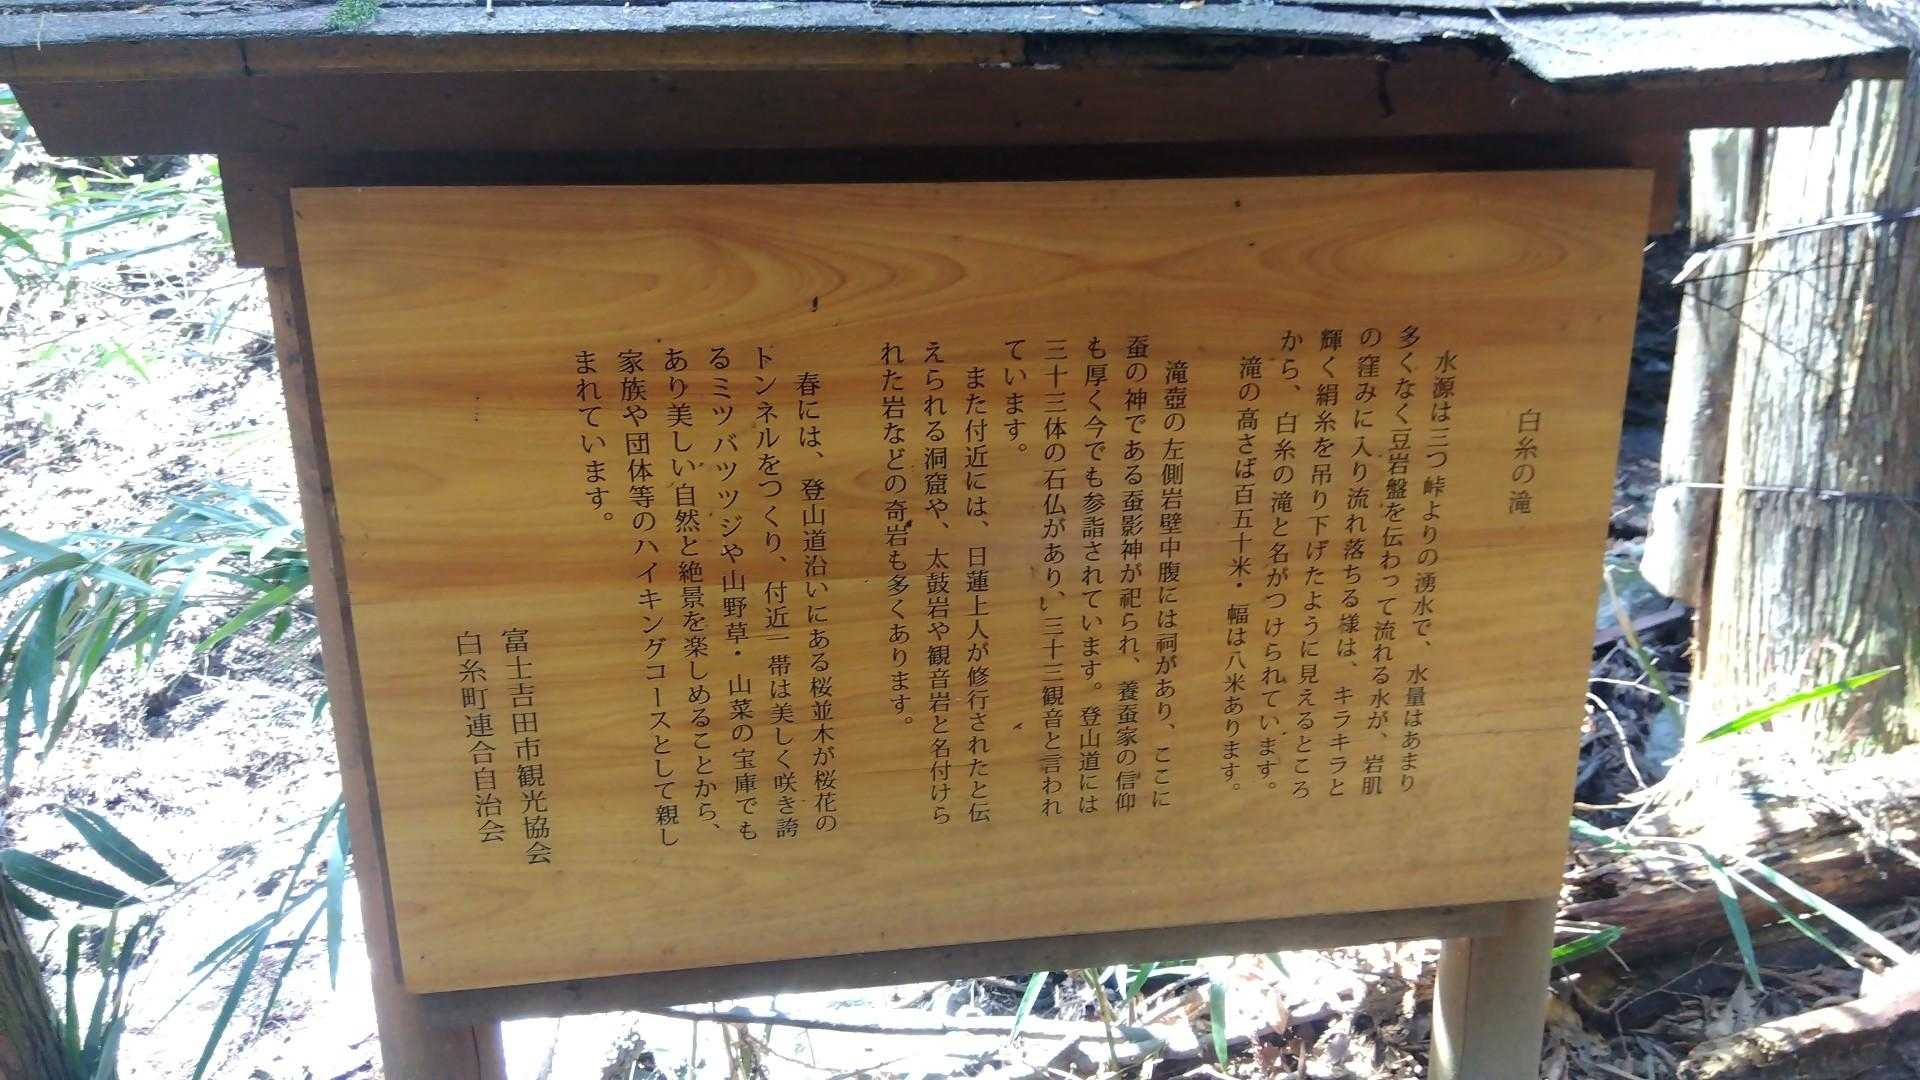 白糸の滝
水源は三つ峠よりの湧水で、水量はあまり
多くなく豆岩盤を伝わって流れる水が、岩肌
の窪みに入り流れ落ちる様は、キラキラと
輝く絹糸を吊り下げたように見えるところ
から、白糸の滝と名がつけられています。
滝の高さば百五十米・幅は八米あります。
滝壺の左側岩壁中腹には祠があり、ここに
蚕の神である蚕影神が祀られ、養蚕家の信仰
も厚く今でも参詣されています。登山道には
三十三体の石仏があり、三十三観音と言われ
ています。
また付近には、日蓮上人が修行されたと伝
えられる洞窟や、太鼓岩や観音岩と名付けら
れた岩などの奇岩も多くあります。
春には、登山道沿いにある桜並木が桜花の
トンネルをつくり、付近一帯は美しく咲き誇
るミツバツツジや山野草・山菜の宝庫でも
あり美しい自然と絶景を楽しめることから、
家族や団体等のハイキングコースとして親し
まれています。
富士吉田市観光協会
白糸町連合自治会